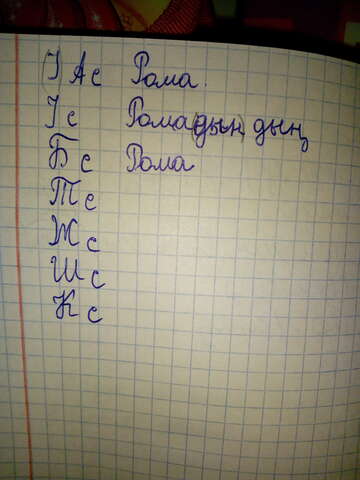 I Ас Рома.
Iс Рома(дын) дың
Бс Рома
Тс
Жс
Шс
Кс